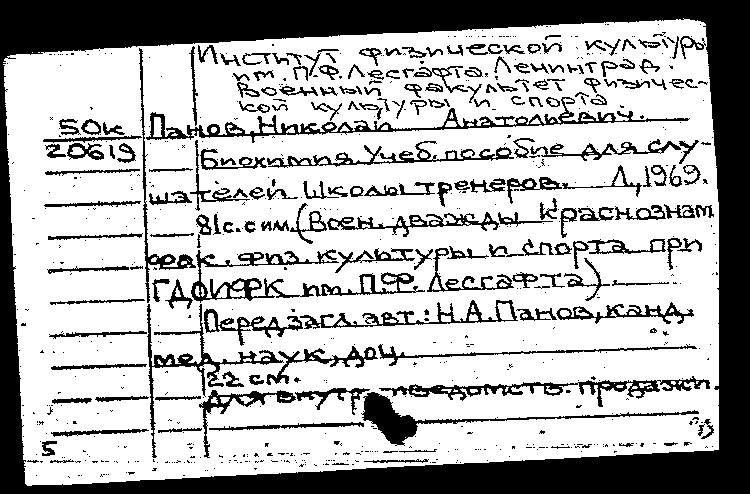 Институт физической культуры
им. П.Ф. Лесгафта. Ленинград.
Военный факультет физичес-
кой культуры и спорта
50к Панов, Николай Анатольевич.
20619 Биохимия. Учеб. пособие для слу-
шателей Школы тренеров. Л., 1969.
81с. с им. (Воен. дважды Краснознам
фак. физ. культуры и спорта при
ГДОИФК им. П.Ф. Лесгафта).
Перед загл. авт.: Н.А. Панов, канд.
мед. наук, доц.
22 см.
Для внутриведомств. продажи.
5